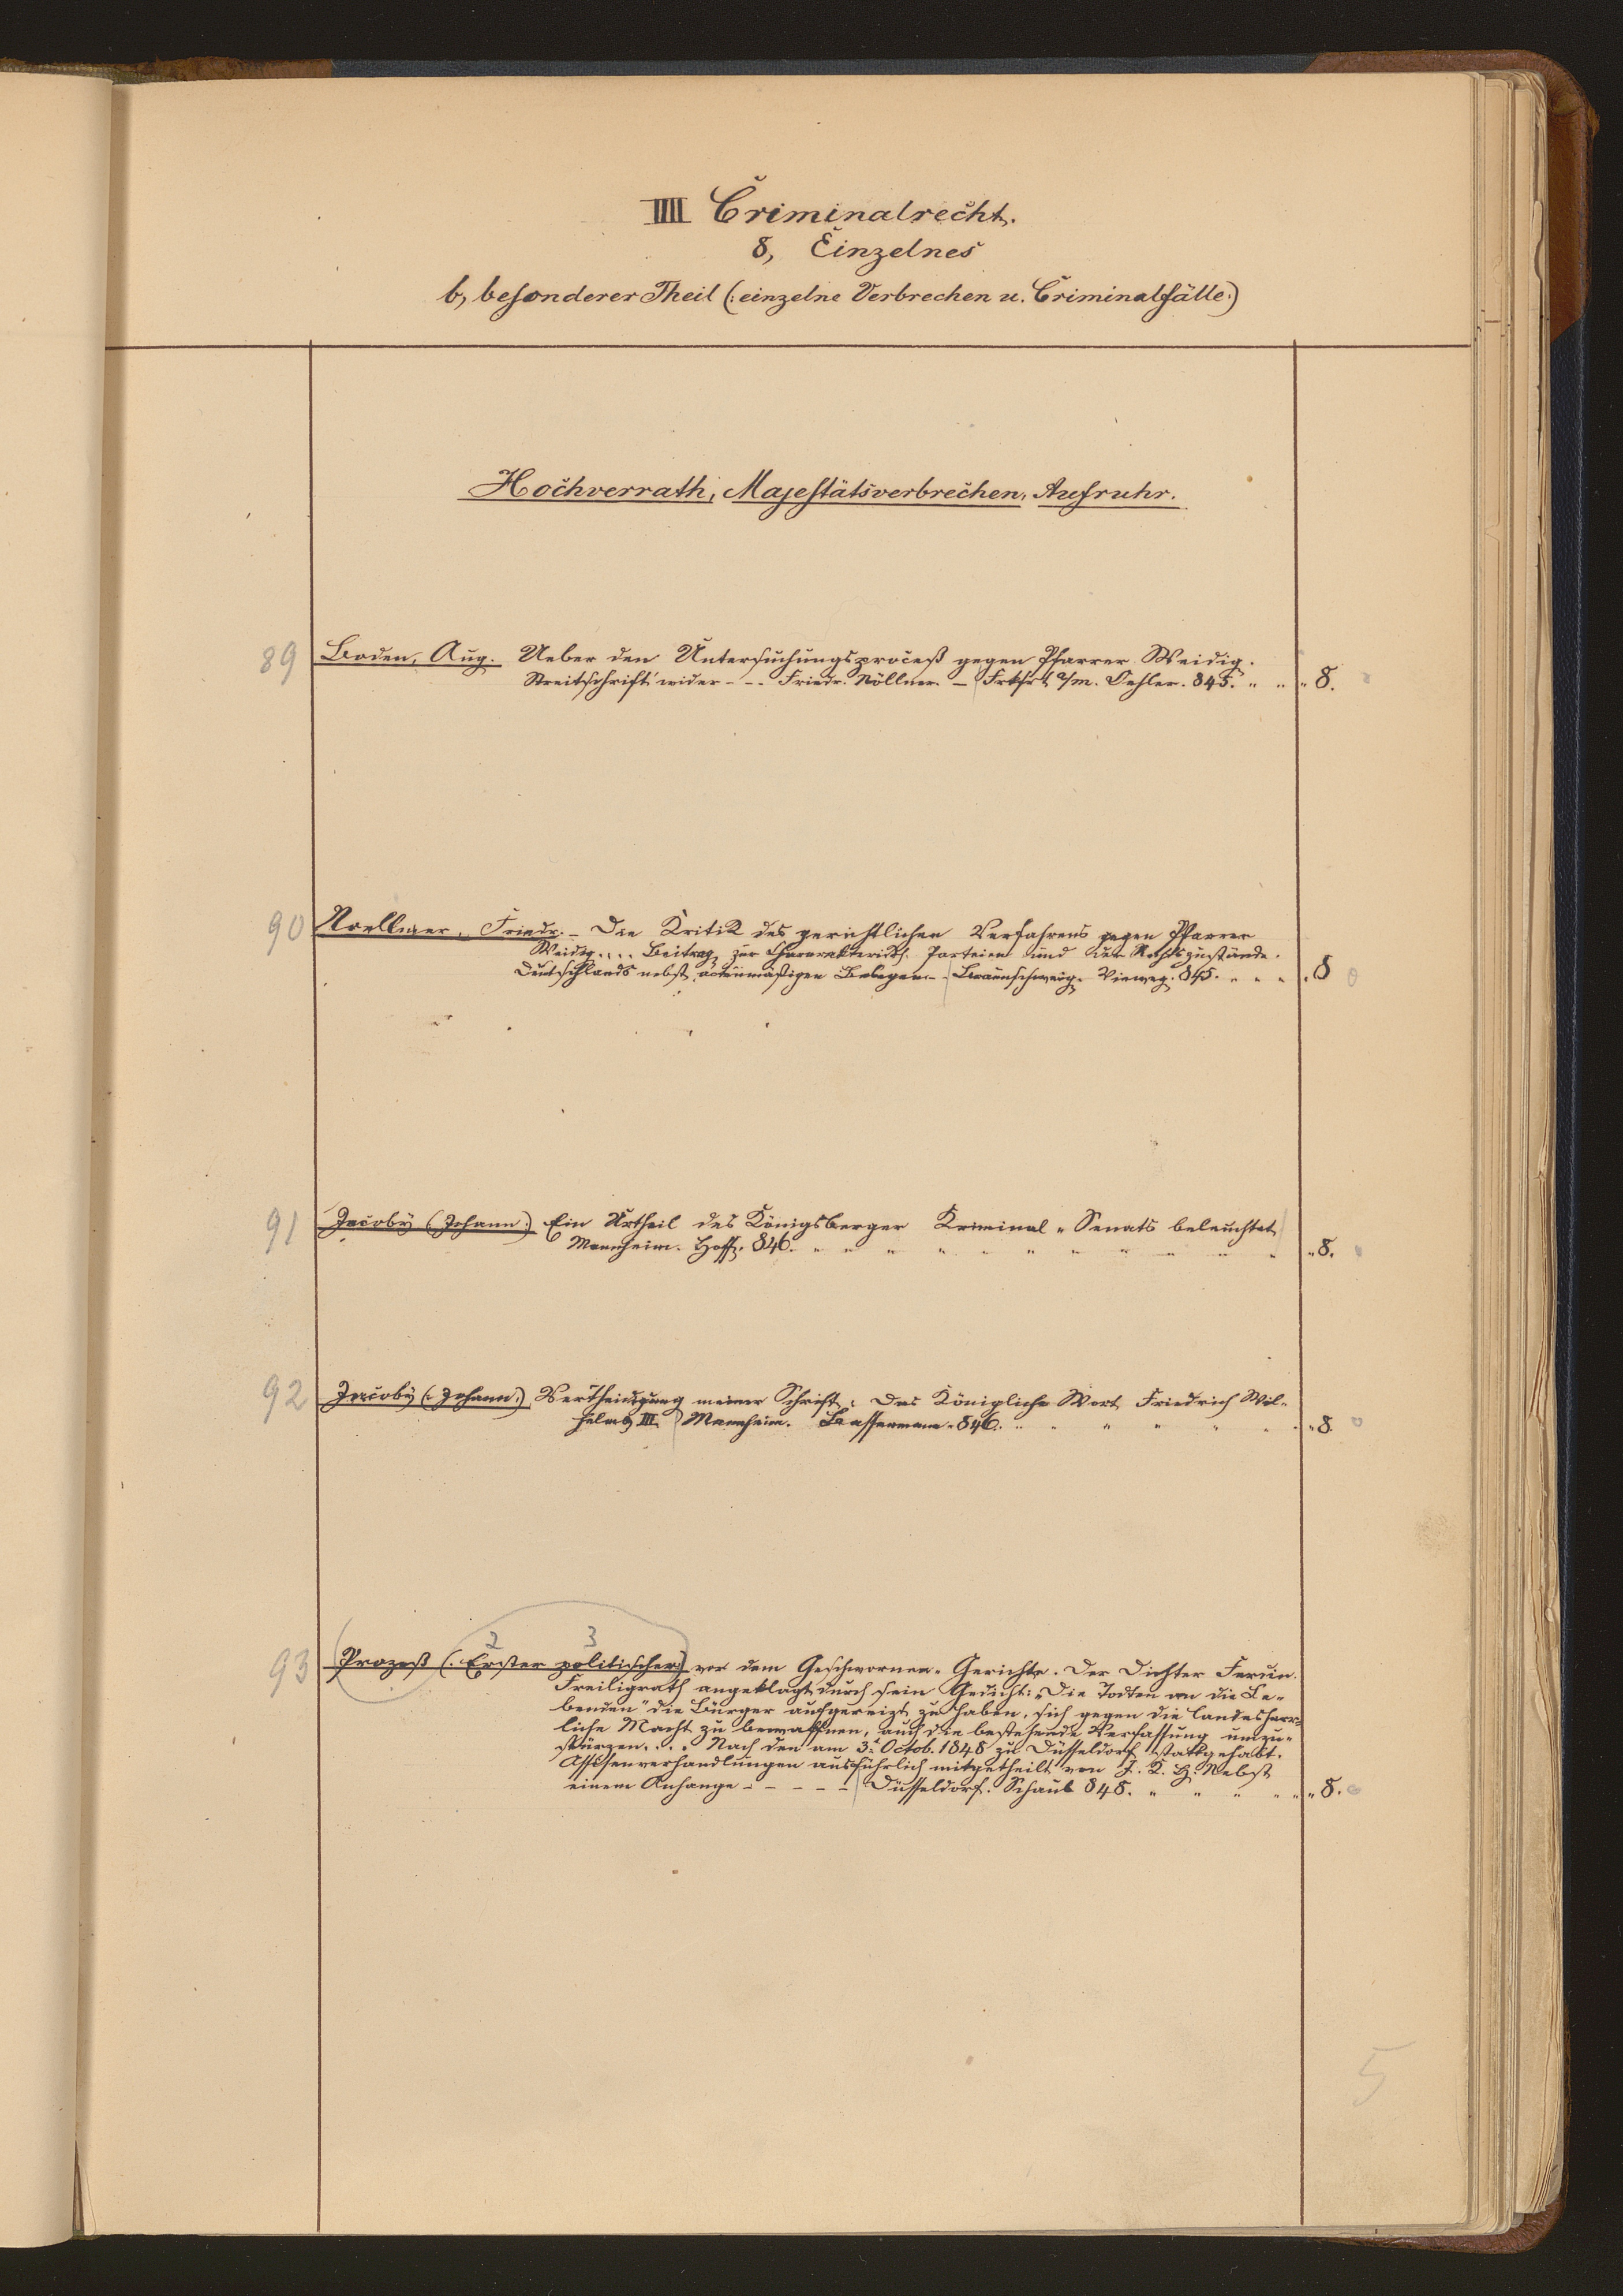 IIII Criminalrecht.
8, Einzelnes
b, besonderer Theil (: einzelne Verbrechen u. Criminalfälle :)
Hochverrath, Majestätsverbrechen, Aufruhr.
89 Boden, Aug. Ueber den Untersuchungsproceß gegen Pfarrer Weidig.
Streitschrift wider - - - Friedr. Nöllner. - Frkfrt a/m. Oehler. 845. " " " 8.
90 Noellner, Friedr. - Die Kritik des gerichtlichen Verfahrens gegen Pfarrer
Weidig . . . . Beitrag zur Chararakteristik. Parteien und der Rechtszustände.
Deutschlands nebst actenmäßigen Belegen. - Braunschweig. Vieweg. 845. " " " " 8
91 Jacoby (Johann.) Ein Urtheil des Königsberger Kriminal-Senats beleuchtet
Mannheim. Hoff. 846. " " " " " " " " " " " " 8.
92 Jacoby (: Johann.) Vertheidigung meiner Schrift: Das Königliche Wort Friedrich Wil-
helms III. Mannheim. Bassermann. 846. " " " " " " " 8.
2 3
93 Prozeß (: Erster politischer:) vor dem Geschwornen-Gerichte. Der Dichter Ferdin.
Freiligrath angeklagt durch sein Gedicht: „Die Todten an die Le-
benden" die Bürger aufgereizt zu haben, sich gegen die landesherr-
liche Macht zu bewaffnen, auch die bestehende Verfassung umzu-
stürzen. . . . Nach den am 3t Octob. 1848 zu Düsseldorf stattgehabt.
Assisenverhandlungen ausführlich mitgetheilt von J. K. H. Nebst
einem Anhange - - - - - Düsseldorf. Schaub 848. " " " " " " 8.
5